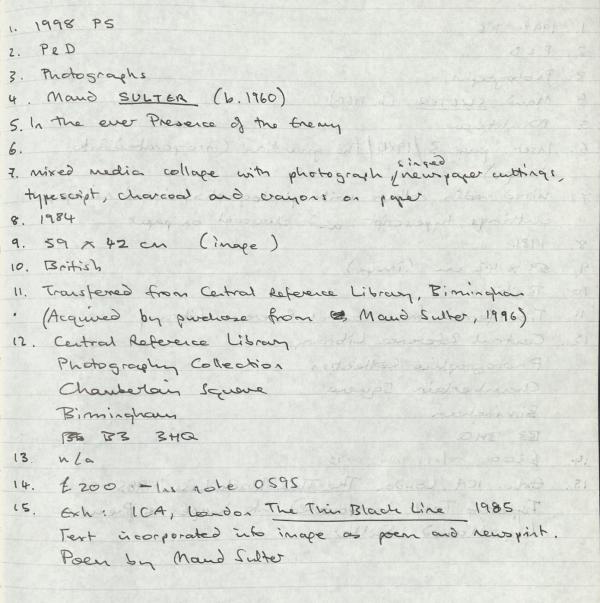 1. 1998 PS
2. P&D
3. Photographs
4. Maud SULTER (b.1960)
5. In the ever Presence of the Enemy
6.
7. mixed media collage with photograph, singed newspaper cuttings,
typescript, charcoal and crayons on paper
8. 1984
9. 59 x 42 cm (image)
10. British
11. Transferred from Central Reference Library, Birmingham
(Acquired by purchase from Maud Sulter, 1996)
12. Central Reference Library
Photography Collection
Chamberlain Square
Birmingham
B3 3HQ
13. n/a
14. £200 - Ins note 0595
15. Exh: ICA, London The Thin Black Line 1985
Text incorporated into image as poem and newsprint.
Poem by Maud Sulter